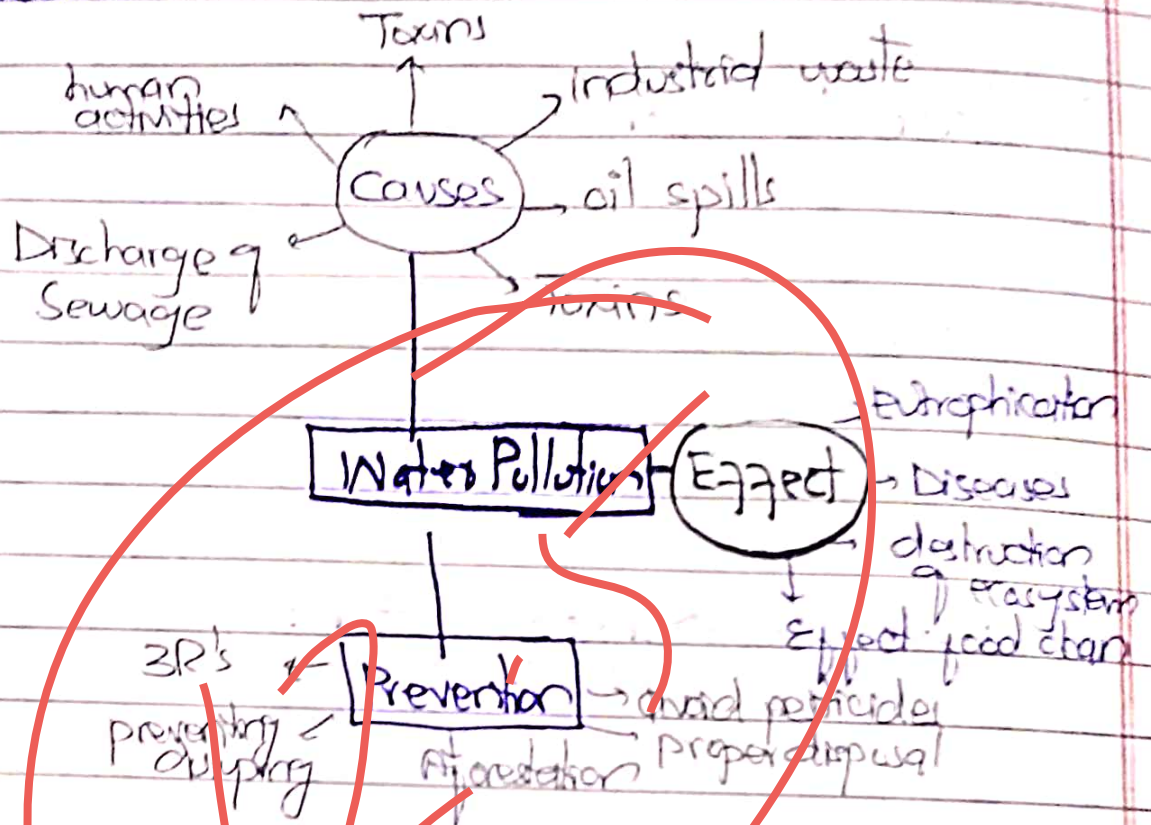 Toxins
human
activities
industrial waste
Causes
oil spills
Discharge of
Sewage
Toxins
Water Pollution
Effect
Eutrophication
Diseases
destruction
of ecosystem
Effect food chain
3R's
Prevention
avoid pesticides
preventing
dumping
Afforestation
proper disposal